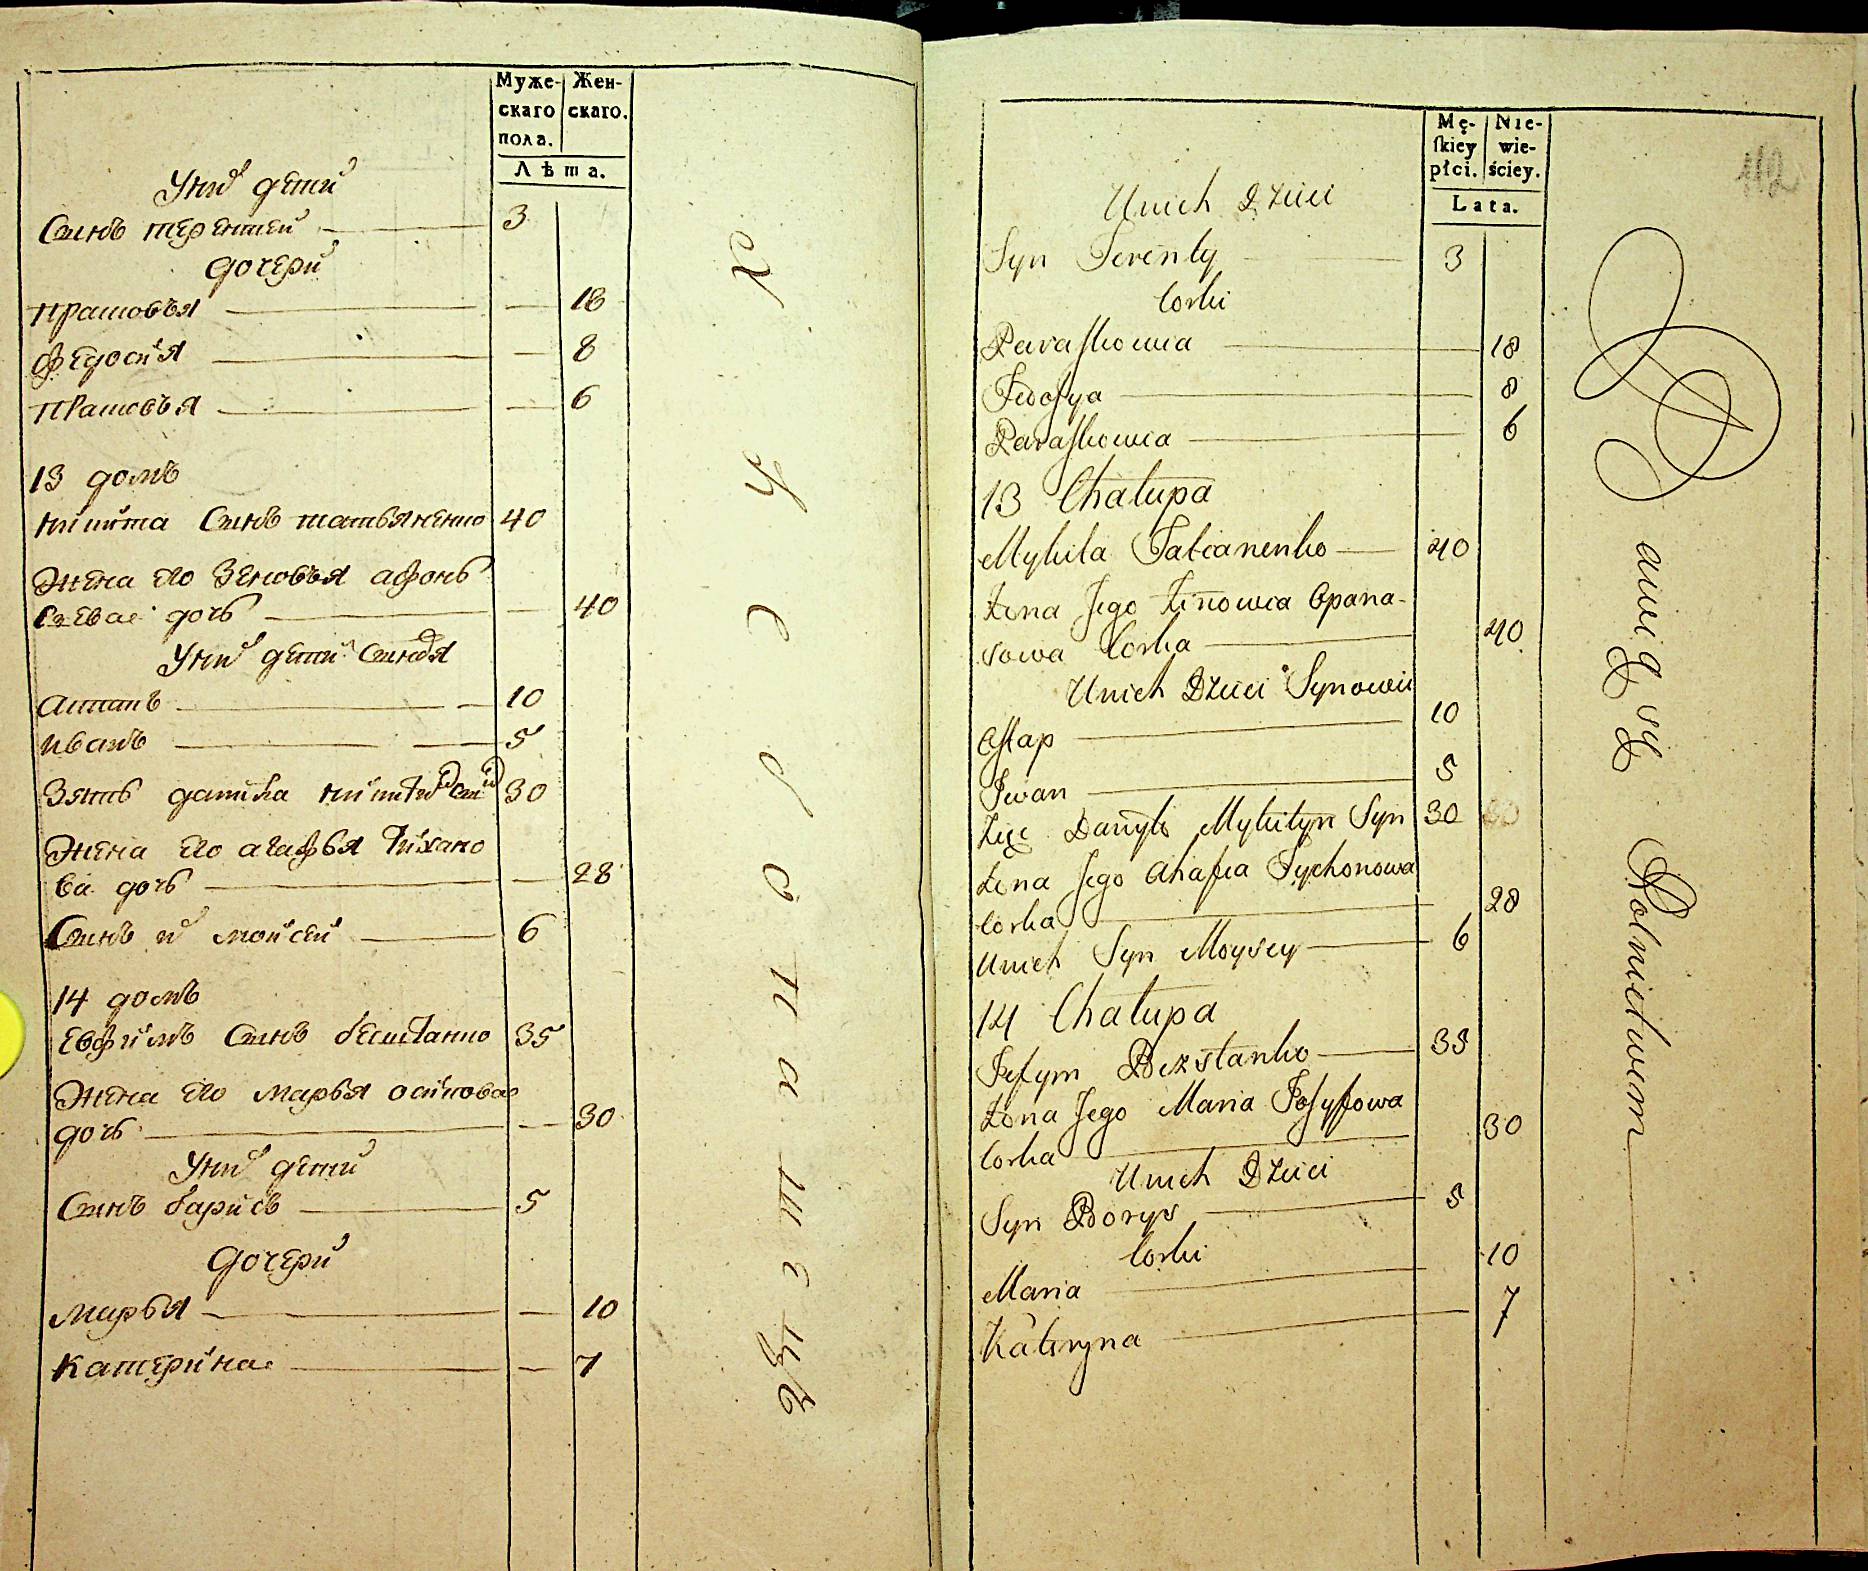 Муже-
скаго
пола.
Жен-
скаго.
Лѣта.
У них дети
Сынъ терентей 3
дочери
прасковья 18
федосия 8
прасковья 6
13 домъ
никита Сынъ татьяненко 40
Жена его Зеновья афонь
сева дочь 40
У них дети Сыновья
астапъ 10
иванъ 5
Зять данила никитин сын 30
Жена его агафья Тихано
ва дочь 28
Сынъ их моисей 6
14 домъ
ефимъ Сынъ бесштанко 35
Жена его марья осипова
дочь 30
У них дети
Сынъ барисъ 5
дочери
марья 10
Катерина 7
Mę-
ſkiey
płci.
Nie-
wie-
ściey.
Lata.
112
Unich Dzieci
Syn Terenty 3
Corki
Paraſkowia 18
Fedoſya 8
Paraſkowia 6
13 Chałupa
Mykita Tatianenko 40
Żona Jego Zinowia Opana-
sowa Corka 40
Unich Dzieci Synowie
Oſtap 10
Iwan 5
Zięć Danyło Mykityn Syn 30
Żona Jego Ahafia Tychonowa
Corka 28
Unich Syn Moysey 6
14 Chałupa
Jefym Bezstanko 35
Żona Jego Maria Joſyfowa
Corka 30
Unich Dzieci
Syn Borys 5
Corki
Maria 10
Kateryna 7
Rolnictwem